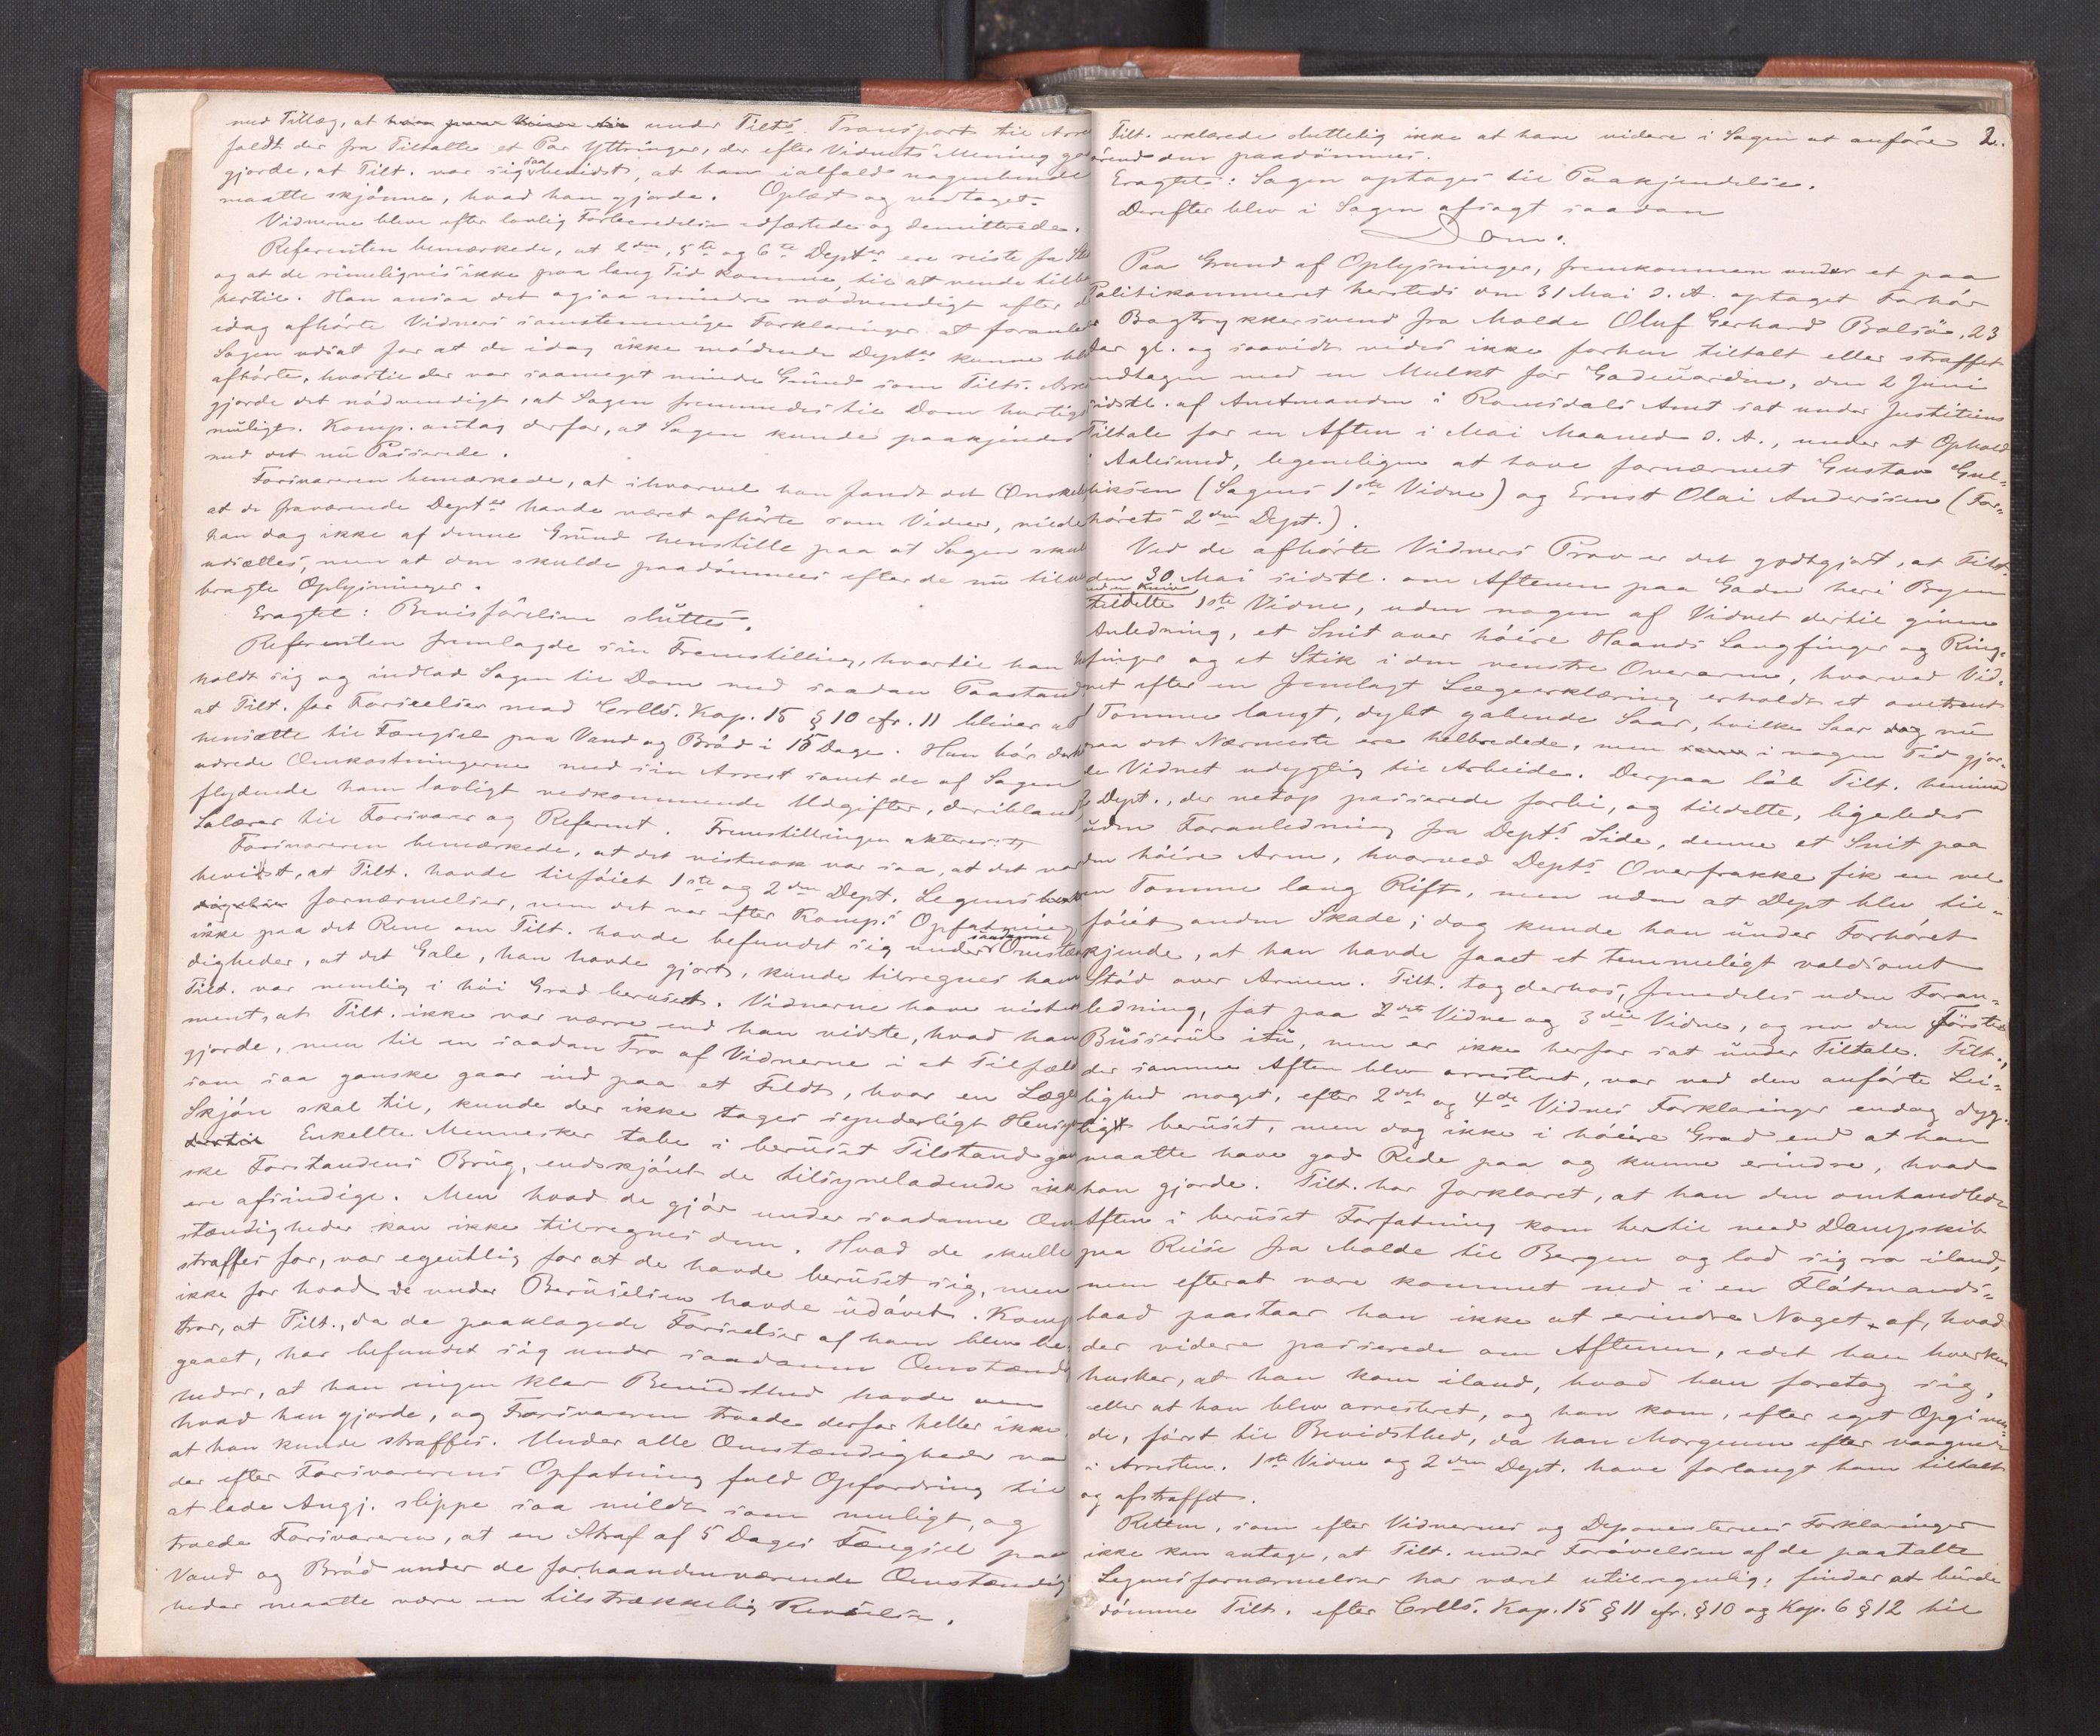 med Tillæg, at ham paa Veien til under Tilts. Transport til Arre
faldt der fra Tiltalte et Par Yttringer, der efter Vidnets Mening god
gjorde, at Tilt. var sig saa bevidst, at han ialfald nogenlunde
maatte skjönne, hvad han gjorde. Oplæst og vedtaget.
Vidnerne bleve efter lovlig Forberedelse edfæstede og demitterede.
Referenten bemærkede, at 2den, 5te og 6te Depter ere reiste fra Ste
og at de rimeligvis ikke paa lang Tid komme til at vende tilba
hertil. Han ansaa det ogsaa mindre nödvendigt efter de
idag afhörte Vidners samstemmige Forklaringer at foranle
Sagen udsat for at de idag ikke mödende Depter kunne bli
afhörte, hvortil der var saameget mindre Grund som Tilts. Arre
gjorde det nödvendigt, at Sagen fremmedes til Dom hurtigs
muligt. Komp. antog derfor, at Sagen kunde paakjendes
med det nu Passerede.
Forsvareren bemærkede, at ihvorvel han fandt det Önske
at de fraværende Depter havde været afhörte som Vidner, vilde
han dog ikke af denne Grund henstille paa at Sagen skul
udsættes, men at den skulde paadömmes efter de nu tilve
bragte Oplysninger.
Eragtet: Bevisförelsen sluttes.
Referenten fremlagde sin Fremstilling, hvortil han h
holdt sig og indlod Sagen til Dom med saadan Paastand
at Tilt. for Forseelser mod Crlls. Kap. 15 § 10 cfr. 11 bliver at
hensætte til Fængsel paa Vand og Bröd i 15 Dage. Han bör derh
udrede Omkostningerne med sin Arrest samt de af Sagen
flydende ham lovligt vedkommende Udgifter, deriblandt
Salærer til Forsvarer og Referent. Fremstillingen akteres:
Forsvareren bemærkede, at det vistnok var saa, at det var
bevist, at Tilt. havde tilföiet 1ste og 2den Dept. Legems
fornærmelser, men det var efter Komp.s Opfatning
ikke paa det Rene om Tilt. havde befundet sig under saadanne Omstæn
digheder, at det Gale, han havde gjort, kunde tilregnes ham
Tilt. var nemlig i höi Grad beruset. Vidnerne have vistnok
ment, at Tilt. ikke var værre end han vidste, hvad han
gjorde, men til en saadan Tro af Vidnerne i et Tilfælde
som saa ganske gaar ind paa et Feldt, hvor en Læge
Skjön skal til, kunde der ikke tages synderligt Hensyn
dertil Enkelte Mennesker tabe i beruset Tilstand gan
ske Forstandens Brug, endskjönt de tilsyneladende ikk
ere afsindige. Men hvad de gjör under saadanne Om
stændigheder kan ikke tilregnes dem. Hvad de skulle
straffes for, var egentlig for at de havde beruset sig, men
ikke for hvad de under Beruselsen havde udövet. Komp
tror, at Tilt., da de paaklagede Forseelser af ham blev be
gaaet, har befundet sig under saadanne Omstændig
heder, at han ingen klar Bevidsthed havde om
hvad han gjorde, og Forsvareren troede derfor heller ikke
at han kunde straffes. Under alle Omstændigheder var
der efter Forsvarerens Opfatning fuld Opfordring til
at lade Angj. slippe saa mildt som muligt, og
troede Forsvareren, at en Straf af 5 Dages Fængsel paa
Vand og Bröd under de forhaandenværende Omstændig
heder maatte være en tilstrækkelig Revselse.
2.
Tilt. erklærede sluttelig ikke at have videre i Sagen at anföre
örend den paadömmes.
Eragtet: Sagen optages til Paakjendelse.
Derefter blev i Sagen afsagt saadan
Dom:
Paa Grund af Oplysninger, fremkommen under et paa
Politikammeret hersteds den 31 Mai d. A. optaget Forhör
er Bogtrykkersvend fra Molde Oluf Gerhard Bolsö, 23
Aar gl. og saavidt vides ikke forhen tiltalt eller straffet
undtagen med en Mulkt for Gadeuorden, den 2 Juni
sidstl. af Amtmanden i Romsdals Amt sat under Justitiens
Tiltale for en Aften i Mai Maaned d. A., under et Ophold
i Aalesund, legemligen at have fornærmet Gustav Gul-
liksen (Sagens 1ste Vidne) og Ernst Olai Anderssen (For-
hörets 2den Dept.).
Ved de afhörte Vidners Prov er det godtgjort, at Tilt.
den 30 Mai sidstl. om Aftenen paa Gaden her i Byen
med en Kniv
tildelte 1ste Vidne, uden nogen af Vidnet dertil given
Anledning, et Snit over höire Haands Langfinger og Ring-
finger og et Stik i den venstre Overarm, hvorved Vid-
net efter en fremlagt Lægeerklæring erholdt et omtrent
1 Tomme langt, dybt gabende Saar, hvilke Saar dog nu
paa det Nærmeste ere helbredede, men i nogen Tid gjor-
de Vidnet udygtig til Arbeide. Derpaa löb Tilt. henimod
2 Dept., der netop passerede forbi, og tildelte, ligeledes
uden Foranledning fra Depts. Side, denne et Snit paa
den höire Arm, hvorved Depts. Overfrakke fik en vel
en Tomme lang Rift, men uden at Dept blev til-
föiet anden Skade; dog kunde han under Forhöret
kjende, at han havde faaet et temmeligt voldsomt
Stöd over Armen. Tilt. tog derhos, fremdeles uden Foran-
ledning, fat paa 2det Vidne og 3die Vidne, og rev den Förstes
Busserul itu, men er ikke herfor sat under Tiltale. Tilt.,
der samme Aften blev arresteret, var ved den anförte Lei-
lighed noget, efter 2det og 4de Vidnes Forklaringer endog dyg-
tigt beruset, men dog ikke i höiere Grad end at han
maatte have god Rede paa og kunne erindre, hvad
han gjorde. Tilt. har forklaret, at han den omhandlede
Aften i beruset Forfatning kom hertil med Dampskib
paa Reise fra Molde til Bergen og lod sig ro iland,
men efterat være kommet ned i en Flötmands-
baad paastaar han ikke at erindre Noget af, hvad
der videre passerede om Aftenen, idet han hverken
husker, at han kom iland, hvad han foretog sig,
eller at han blev arresteret, og han kom, efter eget Opgiven-
de, först til Bevidsthed, da han Morgenen efter vaagnede
i Arresten. 1ste Vidne og 2den Dept. have forlangt ham tiltalt
og afstraffet.
Retten, som efter Vidnernes og Deponenternes Forklaringer
ikke kan antage, at Tilt. under Forövelsen af de paatalte
Legemsfornærmelser har været utilregnelig, finder at burde
dömme Tilt. efter Crlls. Kap. 15 § 11 cfr. § 10 og Kap. 6 § 12 til